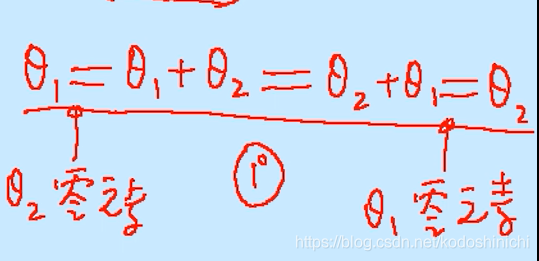 θ₁ = θ₁ + θ₂ = θ₂ + θ₁ = θ₂
θ₂ 零元 1° θ₁ 零元
https://blog.csdn.net/kodoshinichi